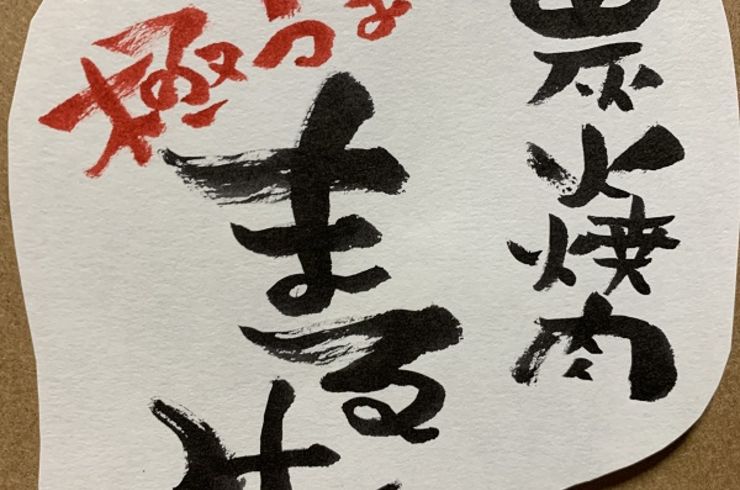 火焼肉
極うま
まる